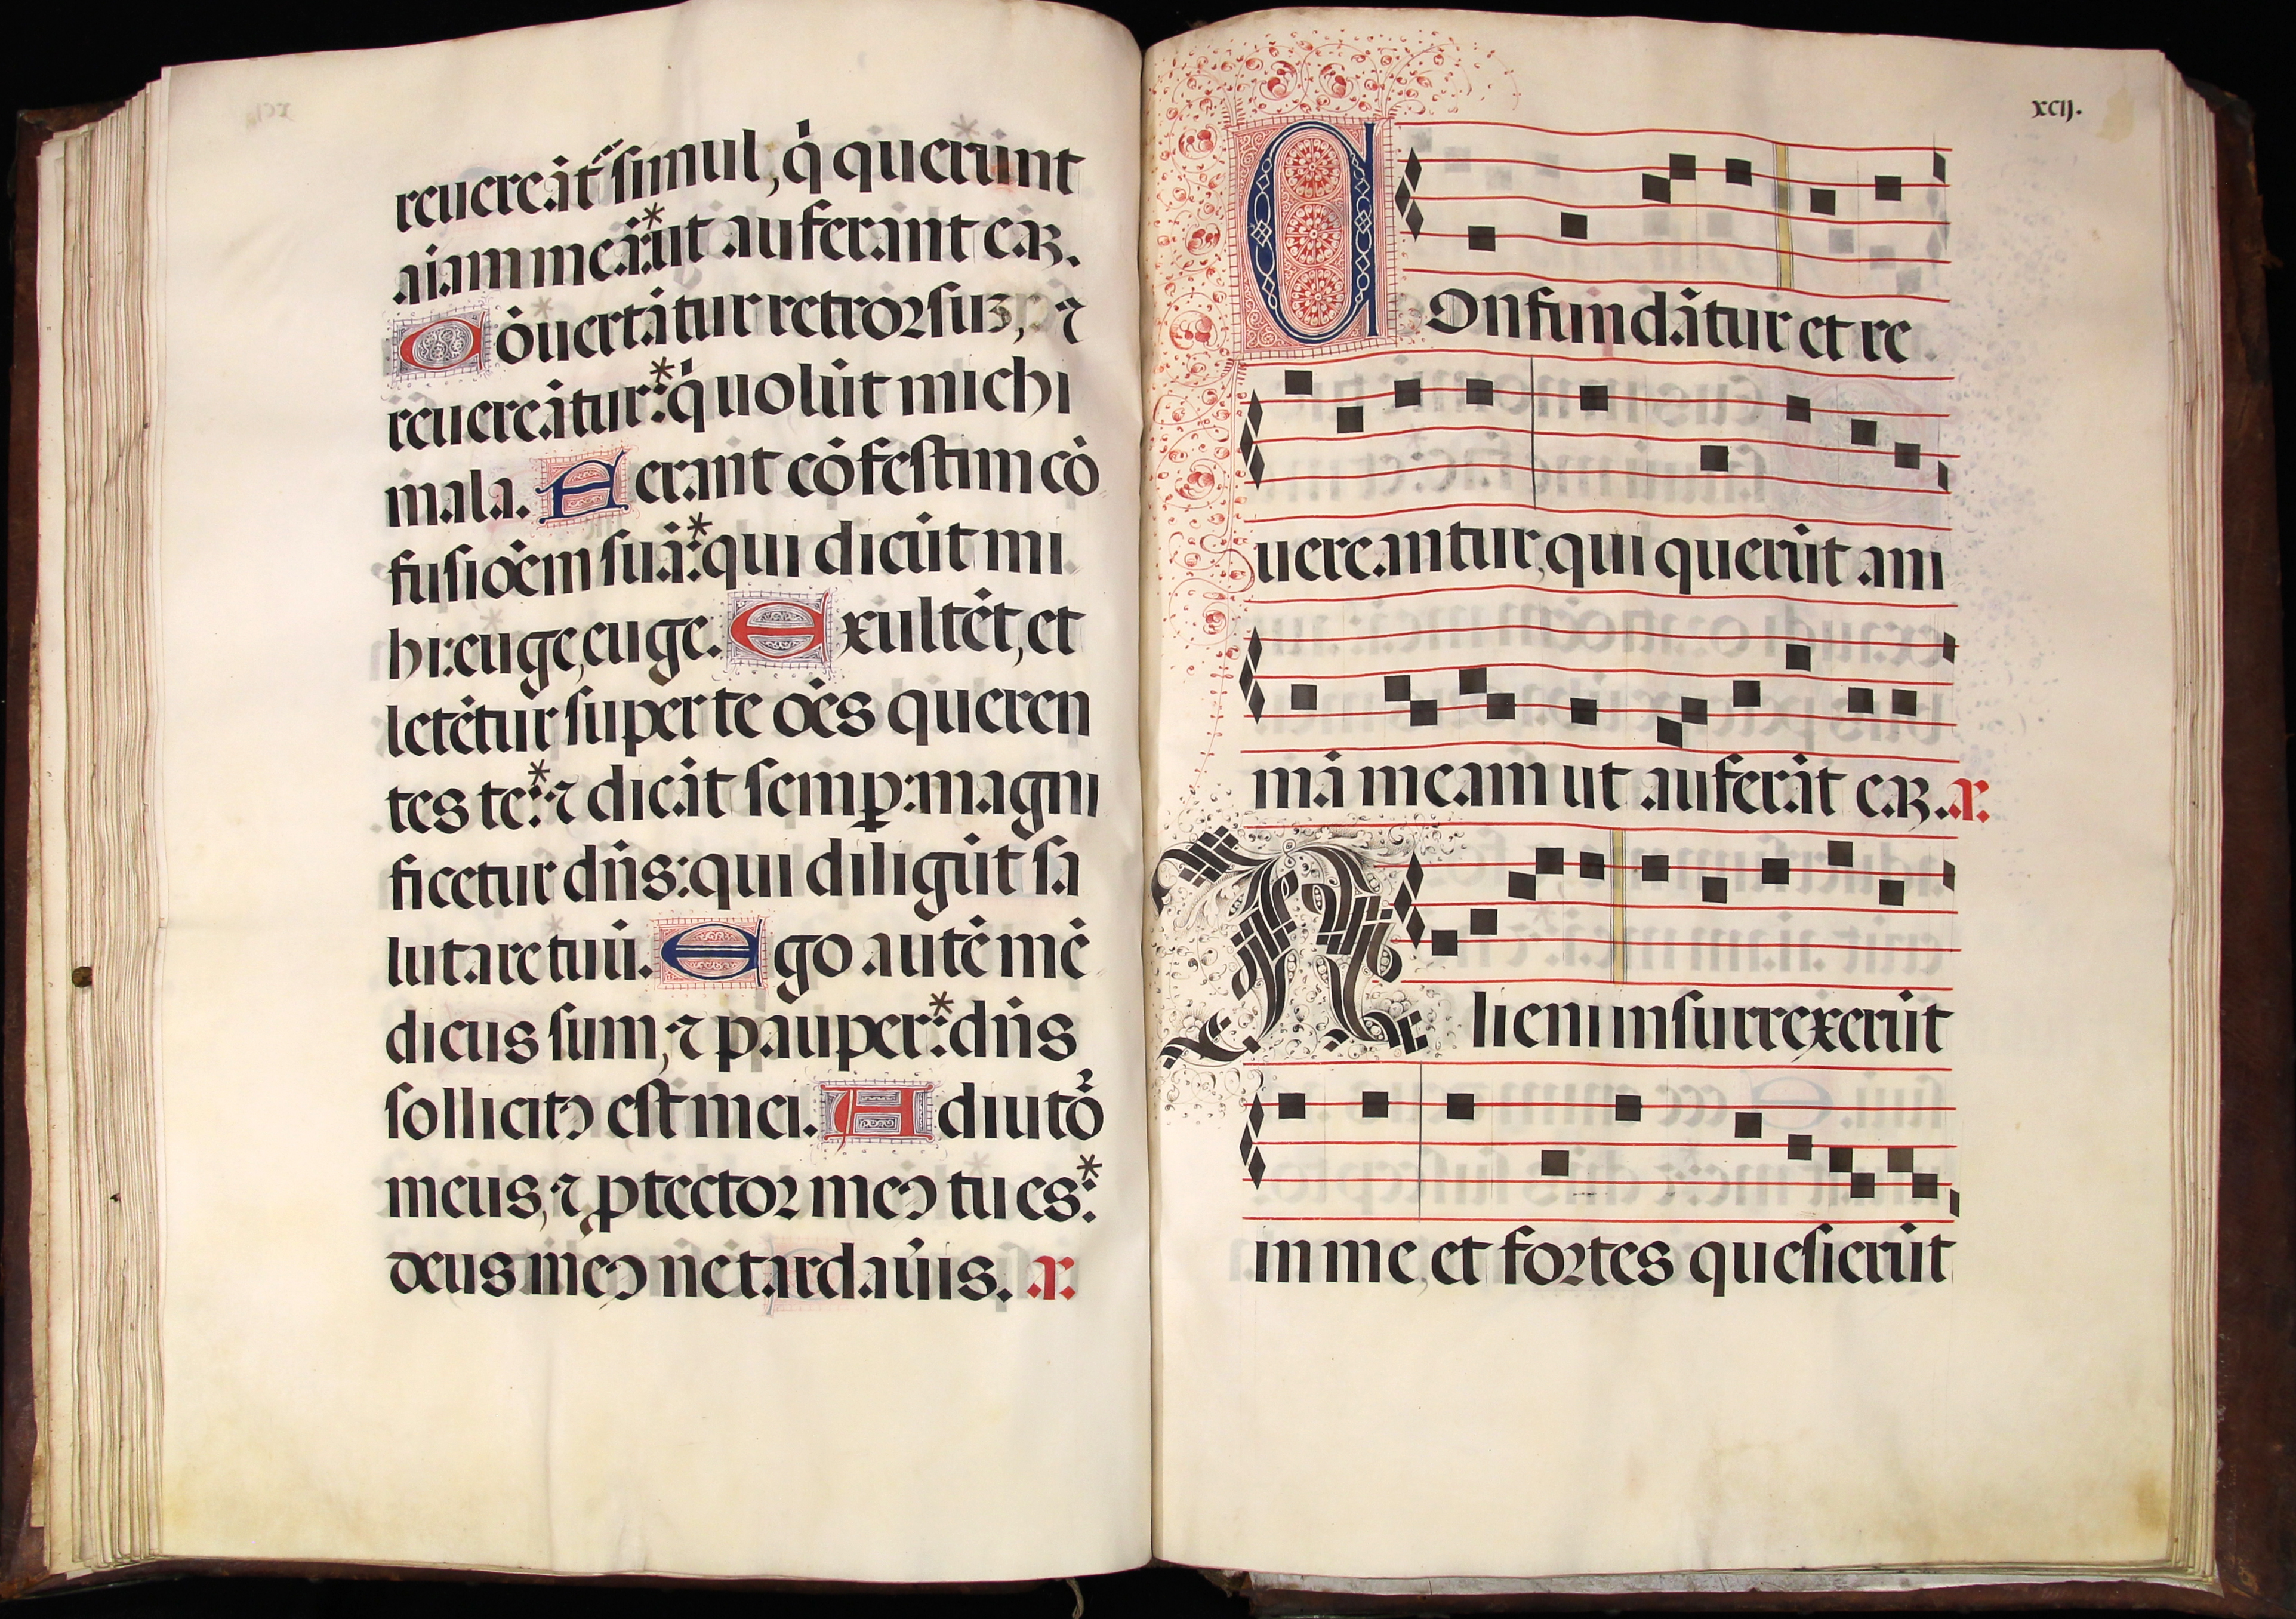 reuereāt᷑ simul, q̇ querūnt
aīam meā: ut auferant eaꝝ.
Cōuertātur retroꝛsuꝫ, ⁊
reuereātur: q̇ uolūt michi
mala. Ferant cōfestim cō
fusiōēm suā: qui dicūt mi
hi: euge, euge. Exultēt, et
letētur super te oēs queren
tes te: ⁊ dicāt semꝑ: magni
ficetur dn̄s: qui diligūt sa
lutare tuū. Ego autē mē
dicus sum, ⁊ pauper: dn̄s
sollicitꝰ est mei. Adiutoꝛ
meus, ⁊ ꝓtectoꝛ meꝰ tu es:
deus meꝰ ne tardaūis. a.
xcij.
Confundātur et re
uereantur, qui querūt ani
mā meam ut auferāt eaꝝ. a.
Alieni insurrexerūt
in me, et foꝛtes quesierūt